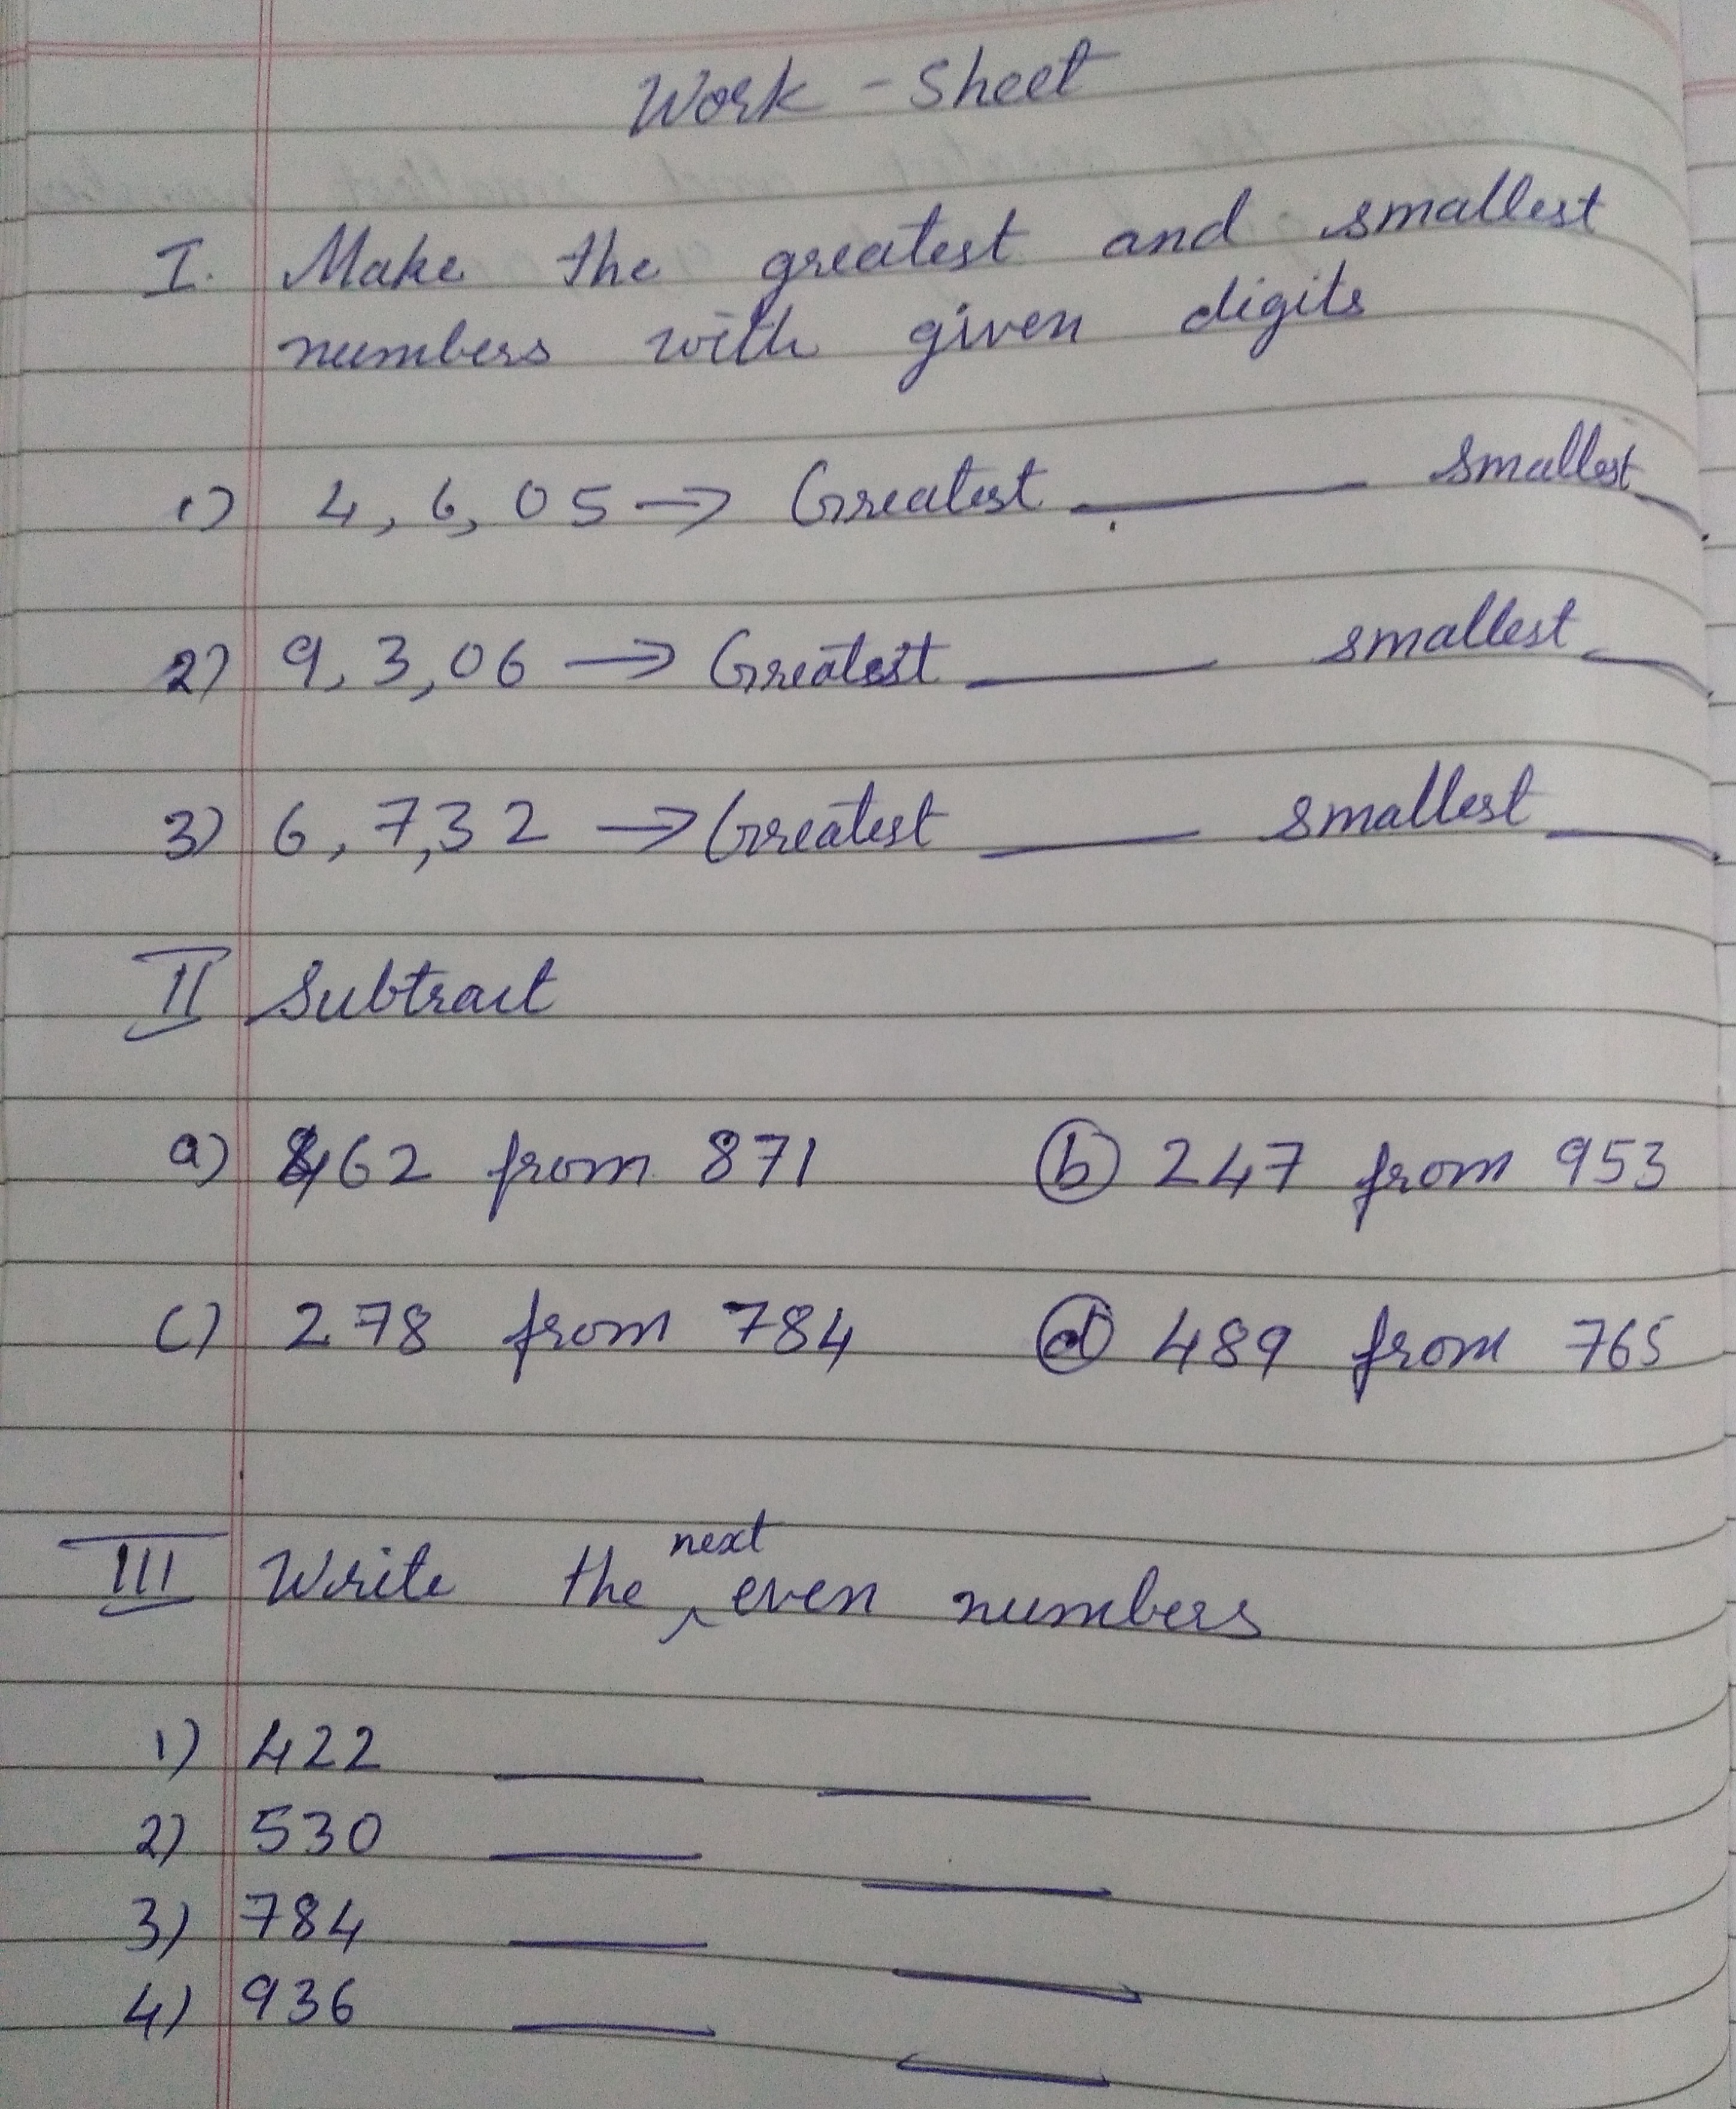 Work - Sheet
I. Make the greatest and smallest
numbers with given digits
1) 4, 6, 05 → Greatest ______ smallest ___
2) 9, 3, 06 → Greatest ______ smallest ___
3) 6, 7, 32 → Greatest ______ smallest ___
II Subtract
a) 462 from 871 (b) 247 from 953
c) 278 from 784 (d) 489 from 765
III Write the next even numbers
1) 422 ______ ______
2) 530 ______ ______
3) 784 ______ ______
4) 936 ______ ______